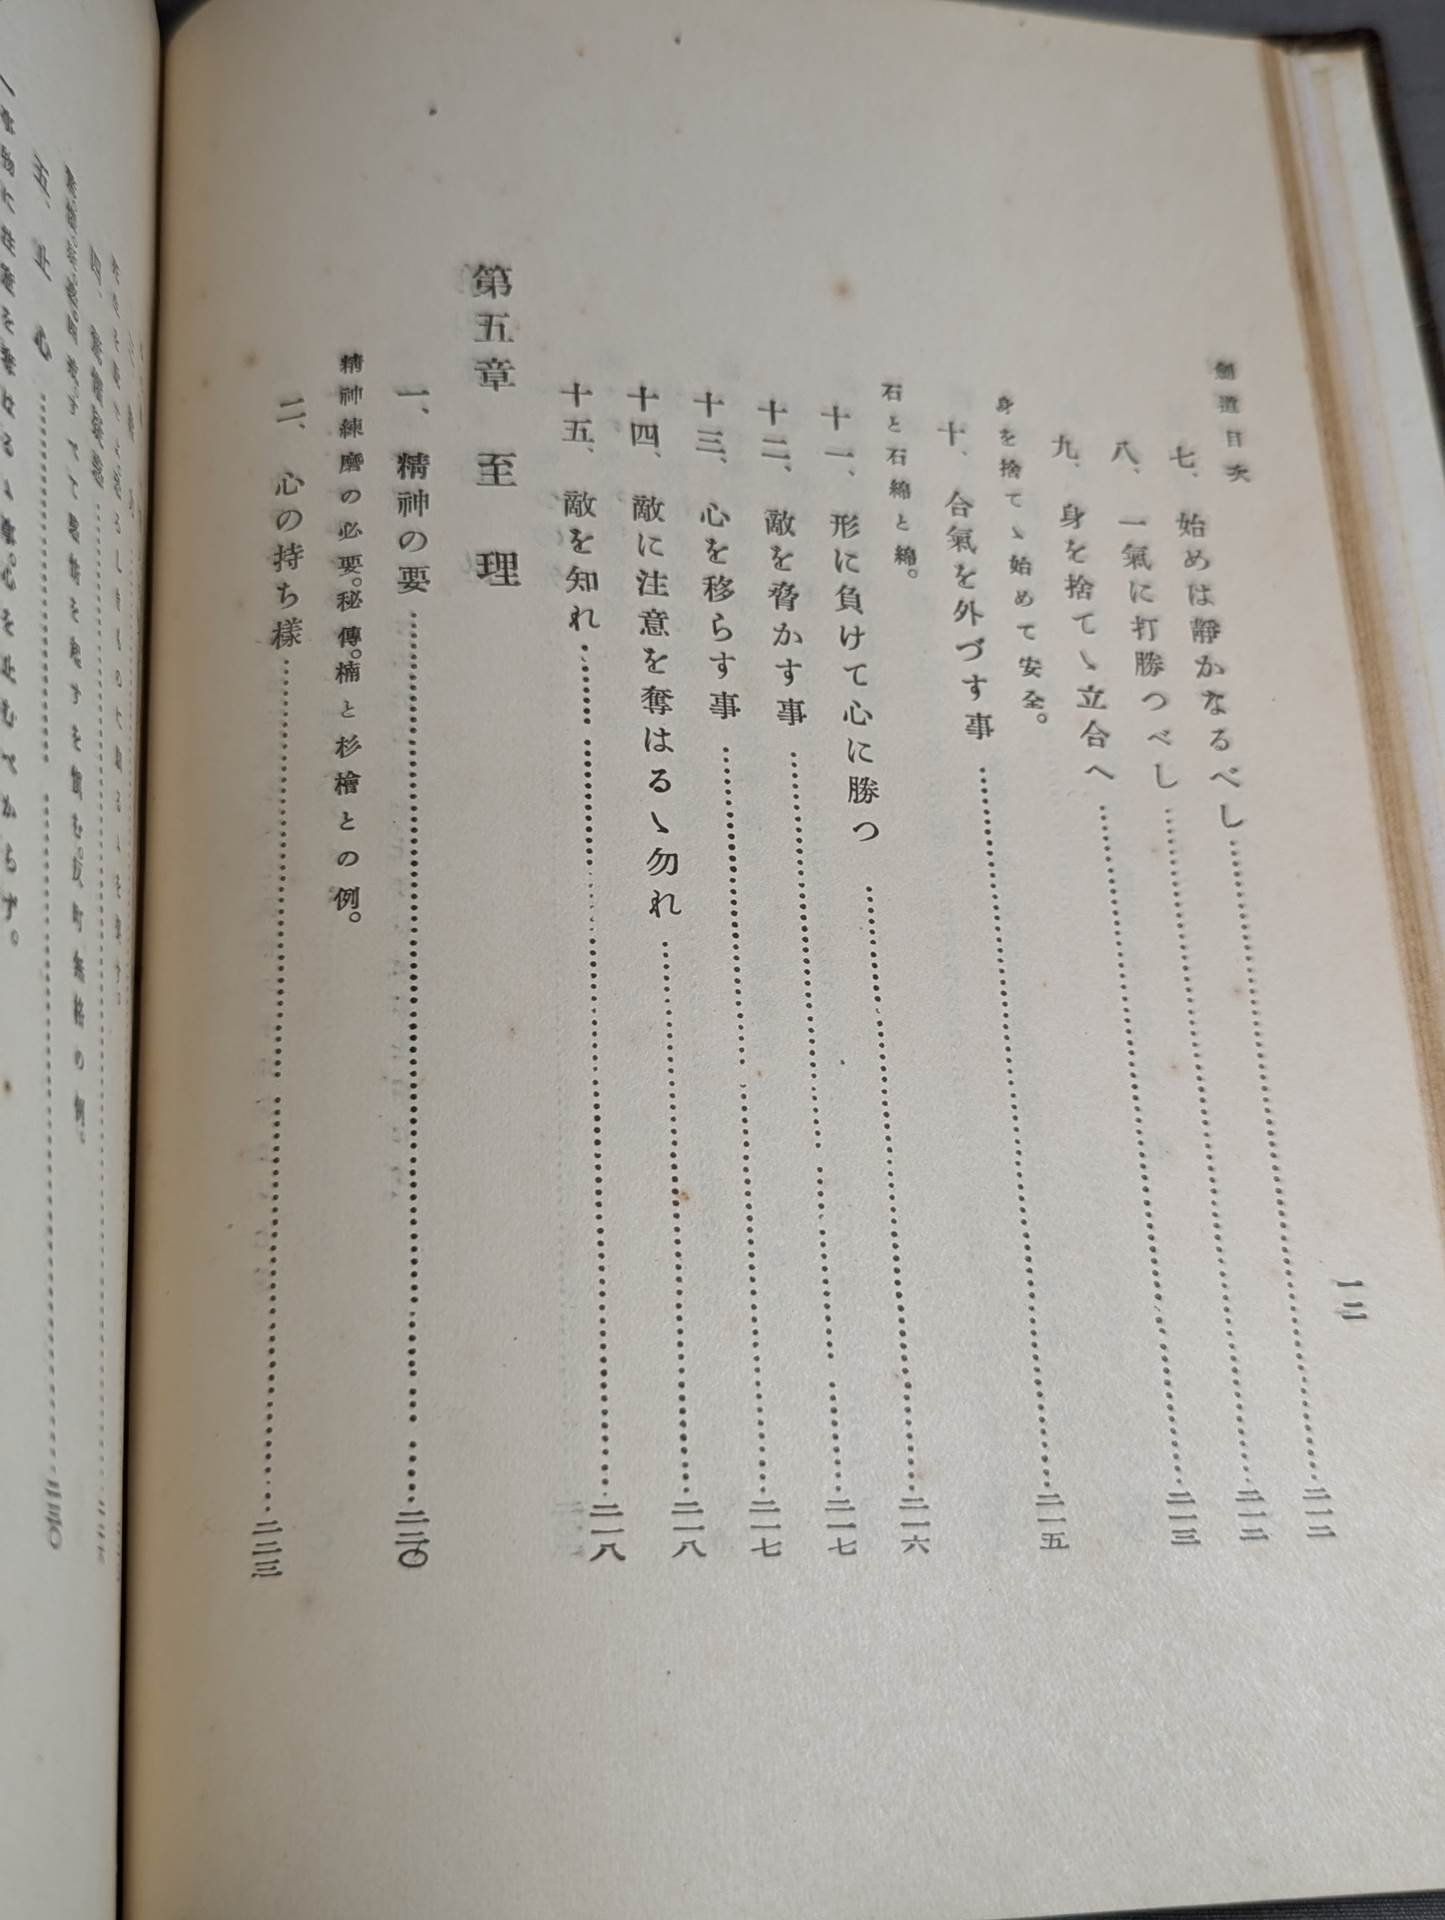 劍道目次
一二
七、始めは靜かなるべし……二一二
八、一氣に打勝つべし……二一二
九、身を捨てゝ立合へ……二一三
身を捨てゝ始めて安全。
十、合氣を外づす事……二一五
石と石綿と綿。
十一、形に負けて心に勝つ……二一六
十二、敵を脅かす事……二一七
十三、心を移らす事……二一七
十四、敵に注意を奪はるゝ勿れ……二一八
十五、敵を知れ……二一八
第五章 至理
一、精神の要……二二〇
精神練磨の必要。秘傳。楠と杉檜との例。
二、心の持ち樣……二二三
五、止心……二三〇